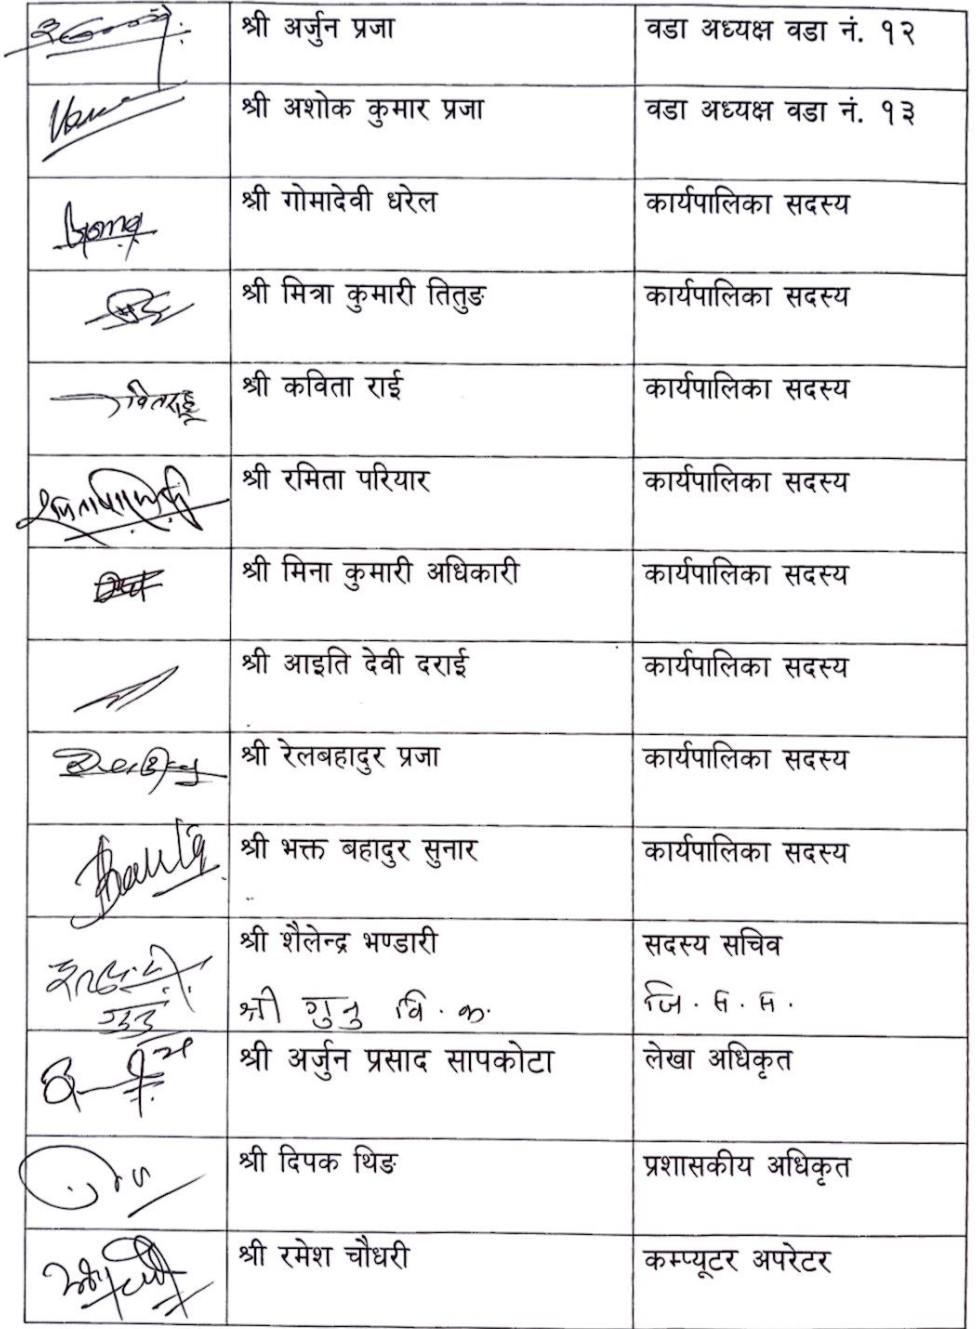 श्री अर्जुन प्रजा वडा अध्यक्ष वडा नं. १२
श्री अशोक कुमार प्रजा वडा अध्यक्ष वडा नं. १३
Goma श्री गोमादेवी धरेल कार्यपालिका सदस्य
श्री मित्रा कुमारी तितुङ कार्यपालिका सदस्य
श्री कविता राई कार्यपालिका सदस्य
श्री रमिता परियार कार्यपालिका सदस्य
श्री मिना कुमारी अधिकारी कार्यपालिका सदस्य
श्री आइति देवी दराई कार्यपालिका सदस्य
श्री रेलबहादुर प्रजा कार्यपालिका सदस्य
श्री भक्त बहादुर सुनार कार्यपालिका सदस्य
श्री शैलेन्द्र भण्डारी सदस्य सचिव
श्री गुनु वि. क. जि. स. स.
श्री अर्जुन प्रसाद सापकोटा लेखा अधिकृत
श्री दिपक थिङ प्रशासकीय अधिकृत
श्री रमेश चौधरी कम्प्यूटर अपरेटर